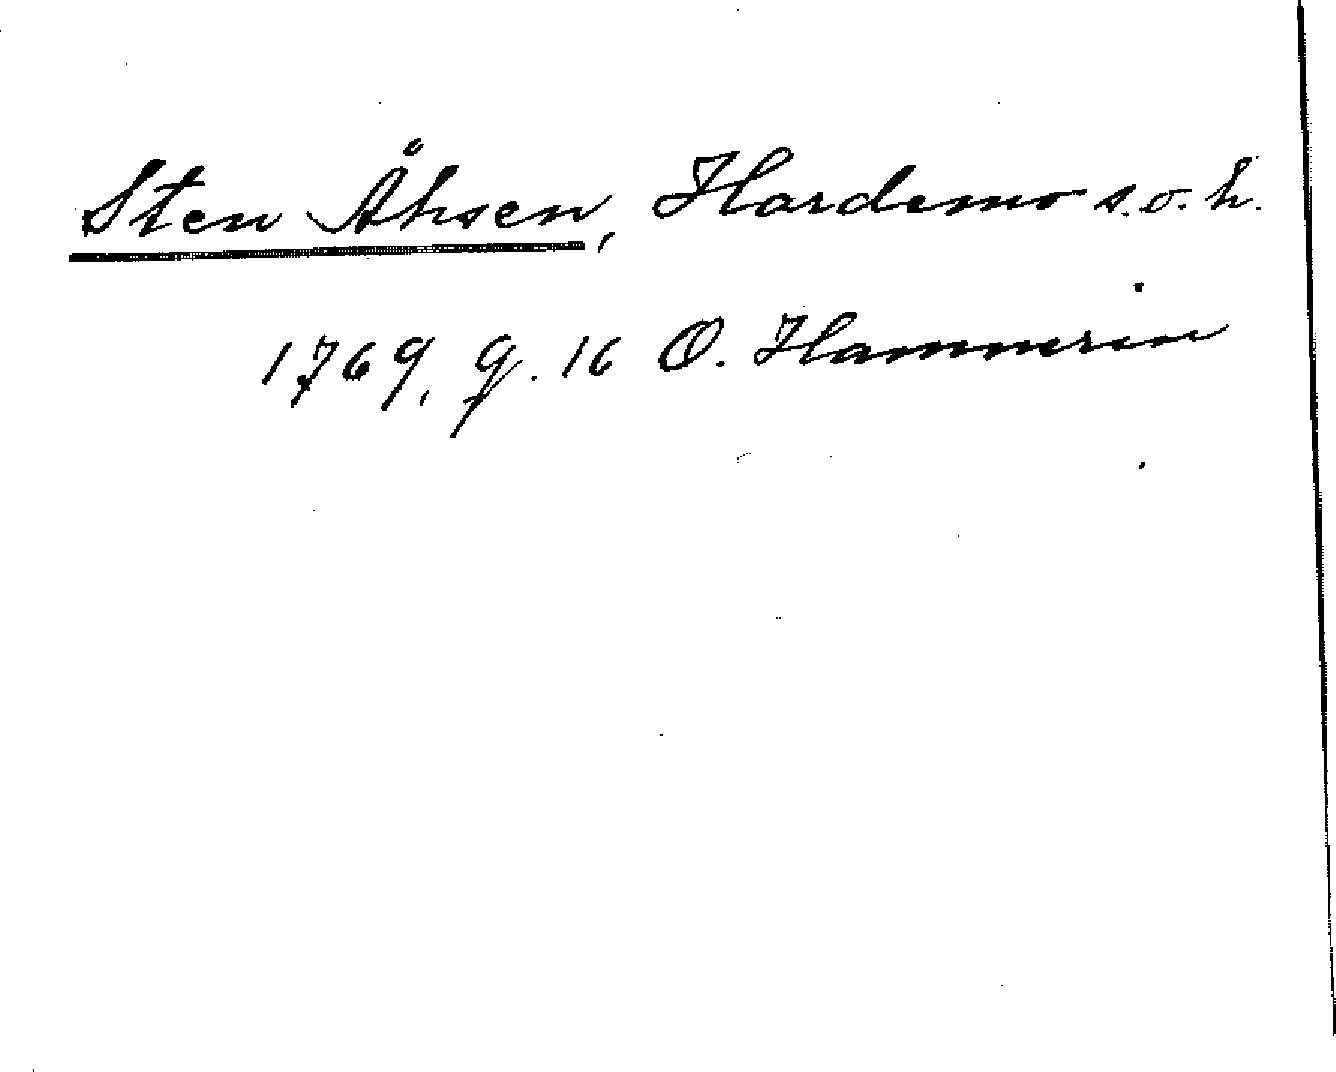 Sten Åhsen, Hardemo s.o.h.
1769, g. 16 O. Hammerin